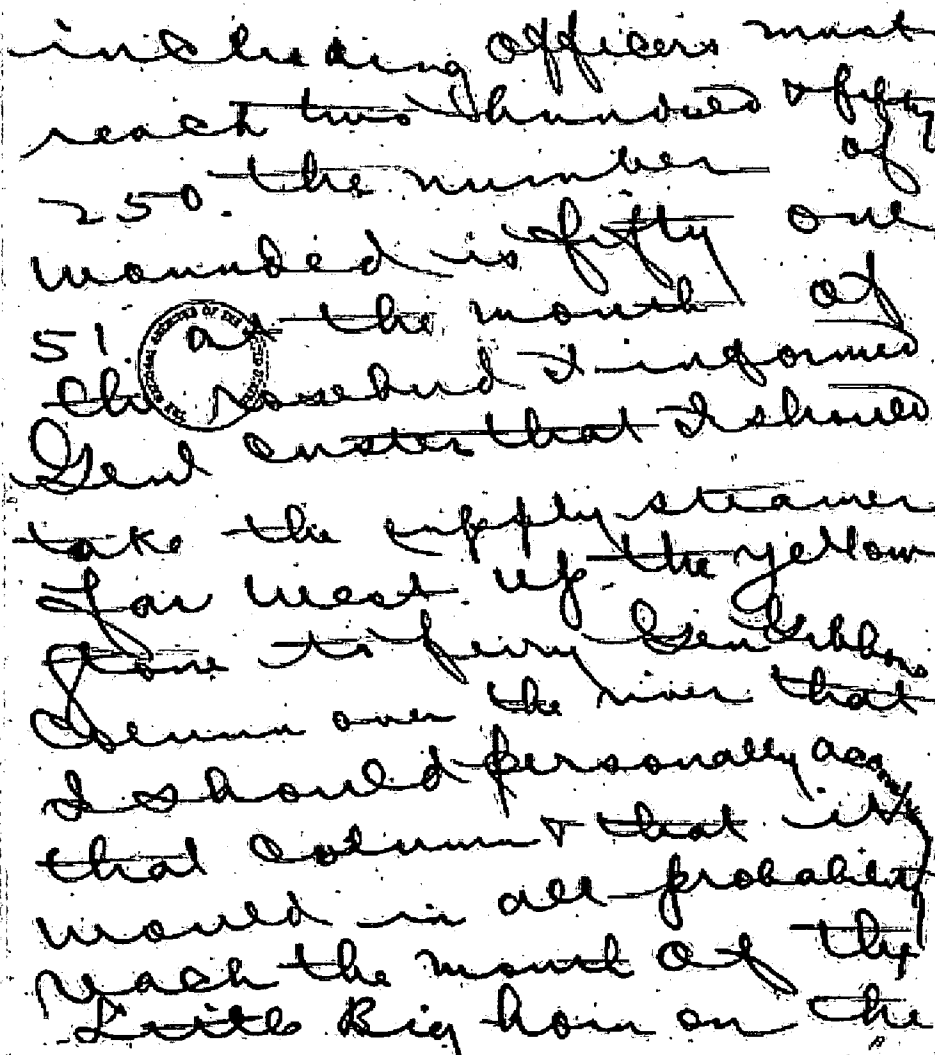 including officers must
reach two hundred & fifty
250. the number of
wounded is fifty one
51. at the mouth of
the rosebud I informed
Genl Custer that I should
take the supply steamer
Far West up the yellow
stone to ferry Gen Gibbons
column over the river that
I should personally accompy
that column & that it
would in all probability
reach the mouth of the
Little Big horn on the